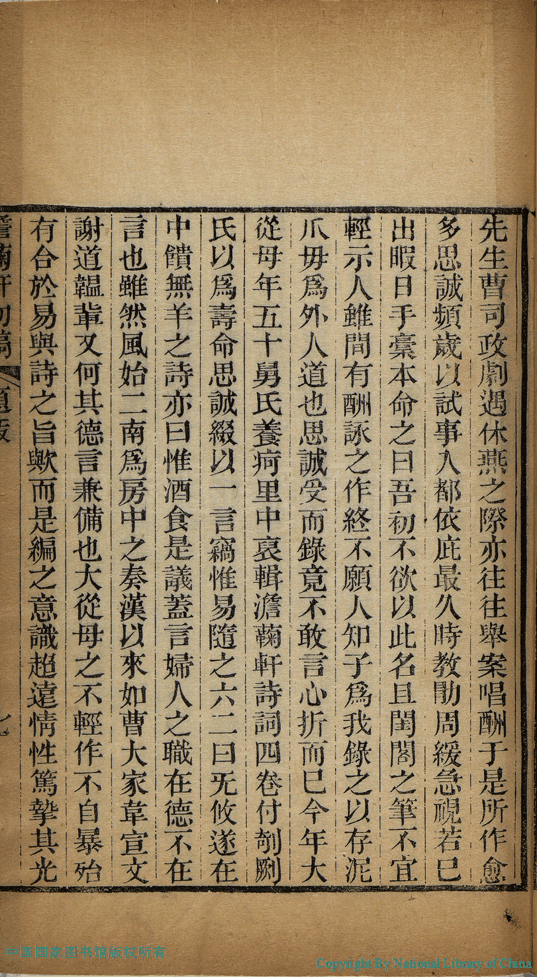 先生曹司政劇遇休燕之際亦往往舉案唱酬于是所作愈
多思誠頻歲以試事入都依庇最久時教勛周緩急視若已
出暇日手稾本命之曰吾初不欲以此名且閨閤之筆不宜
輕示人雖間有酬詠之作終不願人知子爲我錄之以存泥
爪毋爲外人道也思誠受而錄竟不敢言心折而已今年大
從母年五十舅氏養疴里中裒輯澹蘜軒詩詞四卷付剞劂
氏以爲壽命思誠綴以一言竊惟易隨之六二曰旡攸遂在
中饋無羊之詩亦曰惟酒食是議蓋言婦人之職在德不在
言也雖然風始二南爲房中之奏漢以來如曹大家韋宣文
謝道韞輩又何其德言兼備也大從母之不輕作不自暴殆
有合於易與詩之旨歟而是編之意識超遠情性篤摯其光
澹蘜軒初稿 題 七
中國國家图书馆版权所有
Copyright By National Library of China